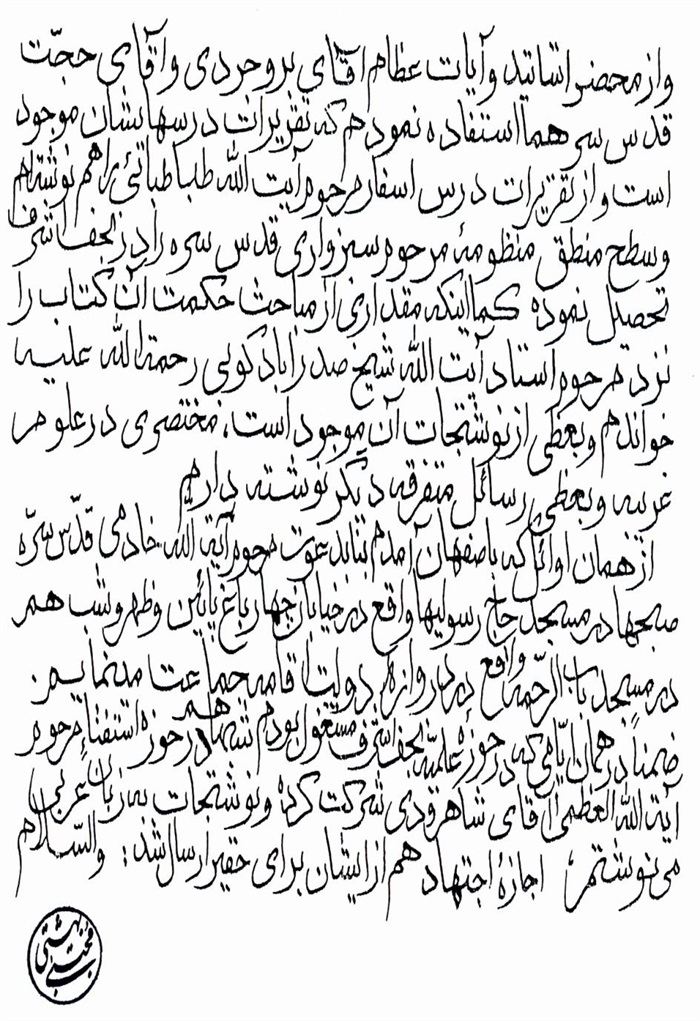 واز محضر اساتید و آیات عظام آقای بروجردی و آقای حجّت
قدس سرهما استفاده نمودم که تقریرات درسهایشان موجود
است و از تقریرات درس اسفار مرحوم آیت الله طباطبائی را هم نوشته‌ام
وسطح منطق منظومهٔ مرحوم سبزواری قدس سره را در نجف اشرف
تحصیل نموده کما اینکه مقداری از مباحث حکمت آن کتاب را
نزد مرحوم استاد آیت الله شیخ صدرا بادکوبی رحمة الله علیه
خوانده‌ام و بعضی از نوشتجات آن موجود است، مختصری در علوم
غریبه و بعضی رسائل متفرقه دیگر نوشته دارم
از همان اوائل که باصفهان آمدم مرحوم آیة الله خادمی قدّس سرّه
صبحها در مسجد حاج رسولیها واقع در خیابان چهارباغ پایین و ظهر و شب هم
در مسجد باب الرّحمة واقع در دروازهٔ دولت اقامه جماعت مینمایم.
ضمناً در همان ایّامی که در حوزهٔ علمیّه نجف اشرف مشغول بودم شبها هم در حوزه استفتاء مرحوم
آیة الله العظمی آقای شاهرودی شرکت کرده و نوشتجات به زبان عربی
می نوشتم؛ اجازهٔ اجتهاد هم از ایشان برای حقیر ارسال شد: والسّلام
مجتبی بهشتی